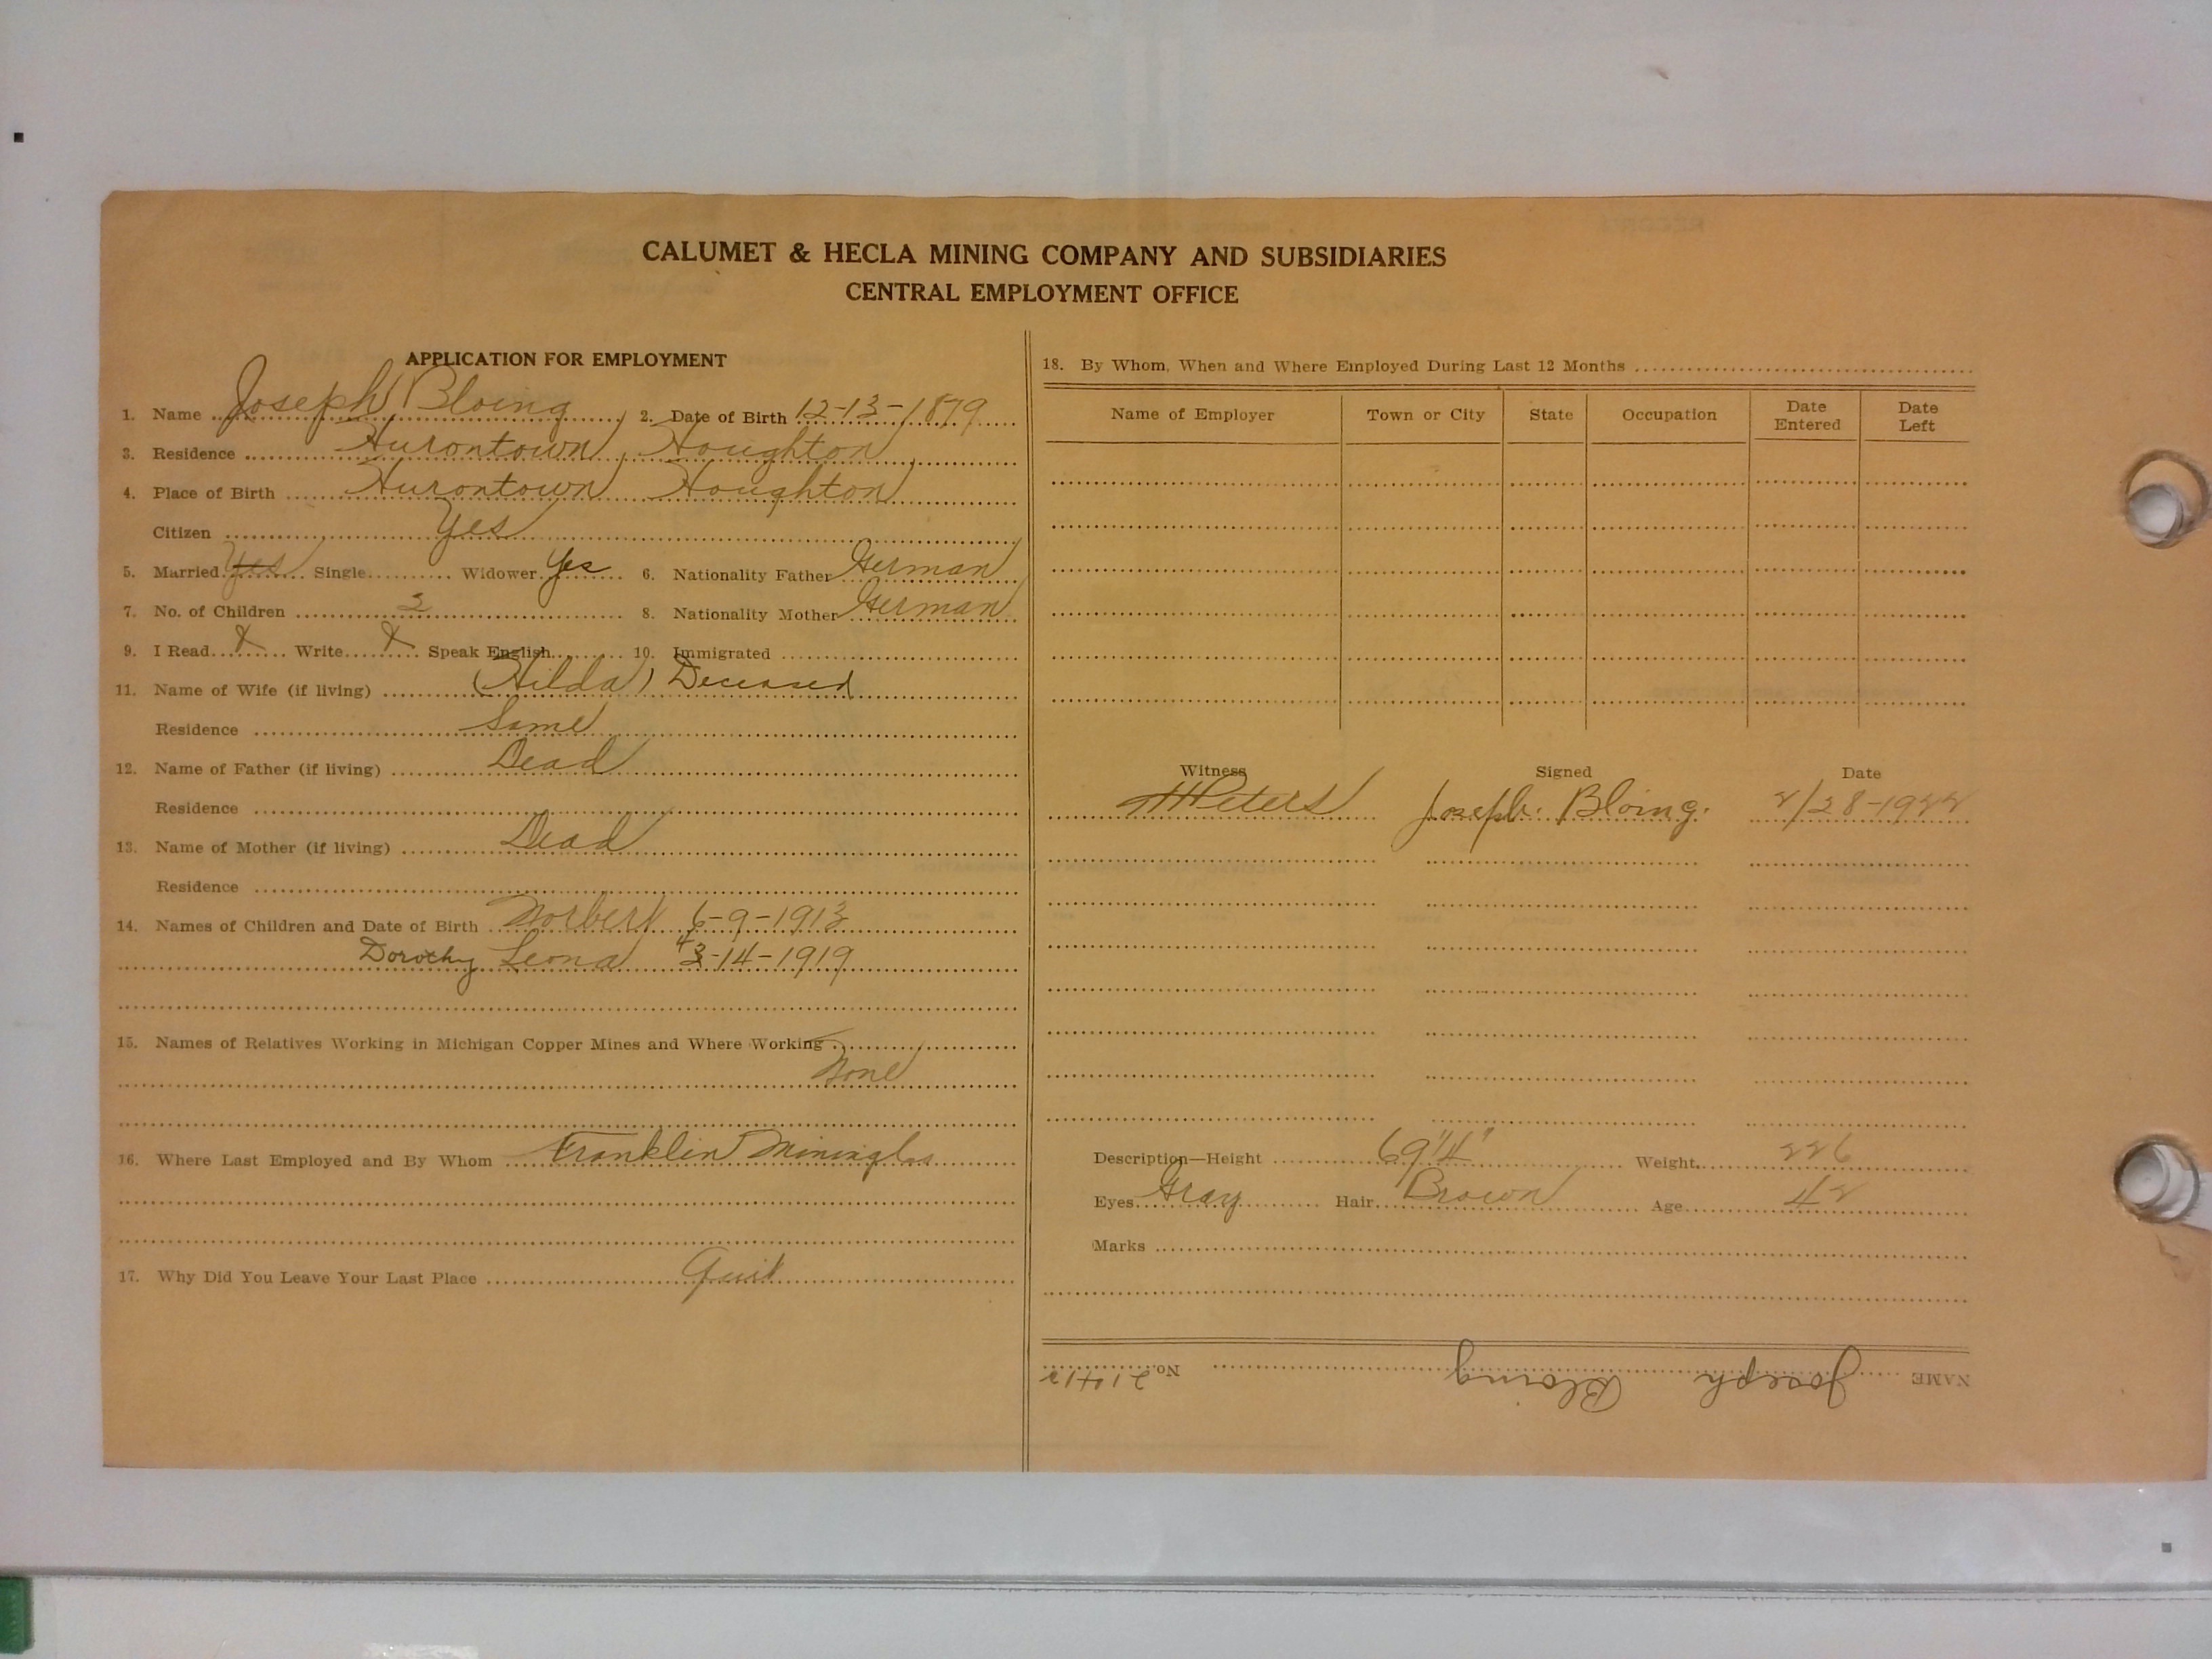 CALUMET & HECLA MINING COMPANY AND SUBSIDIARIES
CENTRAL EMPLOYMENT OFFICE
APPLICATION FOR EMPLOYMENT
1. Name Joseph Bloing 2. Date of Birth 12-13-1879
3. Residence Hurontown, Houghton
4. Place of Birth Hurontown Houghton
Citizen Yes
5. Married Yes Single Widower Yes 6. Nationality Father German
7. No. of Children 2 8. Nationality Mother German
9. I Read X Write X Speak English 10. Immigrated
11. Name of Wife (if living) (Hilda) Deceased
Residence Same
12. Name of Father (if living) Dead
Residence
13. Name of Mother (if living) Dead
Residence
14. Names of Children and Date of Birth Norbert 6-9-1913
Dorothy Leona 4 3-14-1919
15. Names of Relatives Working in Michigan Copper Mines and Where Working
None
16. Where Last Employed and By Whom Franklin Mining
17. Why Did You Leave Your Last Place Quit
18. By Whom, When and Where Employed During Last 12 Months
Name of Employer Town or City State Occupation Date Entered Date Left
Witness Signed Date
Peters Joseph Bloing. 2/28-1922
Description—Height 69 1/4" Weight 226
Eyes Gray Hair Brown Age 42
Marks
NAME Joseph Bloing No.